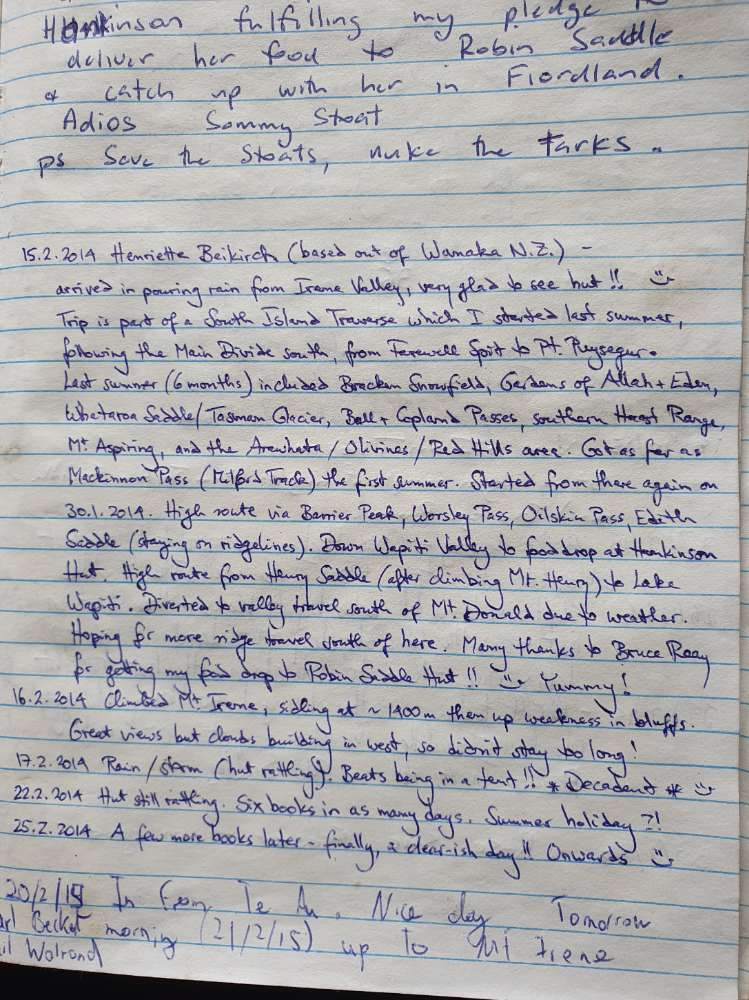 Hankinson fulfilling my pledge to
deliver her food to Robin Saddle
& catch up with her in Fiordland.
Adios Sammy Stoat
ps Save the Stoats, nuke the Tarks.
15.2.2014 Henriette Beikirch (based out of Wanaka N.Z.) -
arrived in pouring rain from Irene Valley, very glad to see hut!!
Trip is part of a South Island Traverse which I started last summer,
following the Main Divide south, from Farewell Spit to Pt. Puysegur.
Last summer (6 months) included Bracken Snowfield, Gardens of Allah + Eden,
Whataroa Saddle/Tasman Glacier, Ball + Copland Passes, southern Haast Range,
Mt Aspiring, and the Arawhata/Olivines/Red Hills area. Got as far as
Mackinnon Pass (Milford Track) the first summer. Started from there again on
30.1.2014. High route via Barrier Peak, Worsley Pass, Oilskin Pass, Edith
Saddle (staying on ridgelines). Down Wapiti Valley to food drop at Hankinson
Hut. High route from Henry Saddle (after climbing Mt. Henry) to Lake
Wapiti. Diverted to valley travel south of Mt. Donald due to weather.
Hoping for more ridge travel south of here. Many thanks to Bruce
for getting my food drop to Robin Saddle Hut!! Yummy!
16.2.2014 Climbed Mt Irene, sidling at ~ 1400m then up weakness in bluffs.
Great views but clouds building in west, so didn't stay too long!
17.2.2014 Rain/storm (hut rattling). Beats being in a tent!! * Decadent *
22.2.2014 Hut still rattling. Six books in as many days. Summer holiday?!
25.2.2014 A few more books later - finally, a clear-ish day!! Onwards
20/2/15 In From Te An. Nice day Tomorrow
morning (21/2/15) up To Mt Irene
Walrond